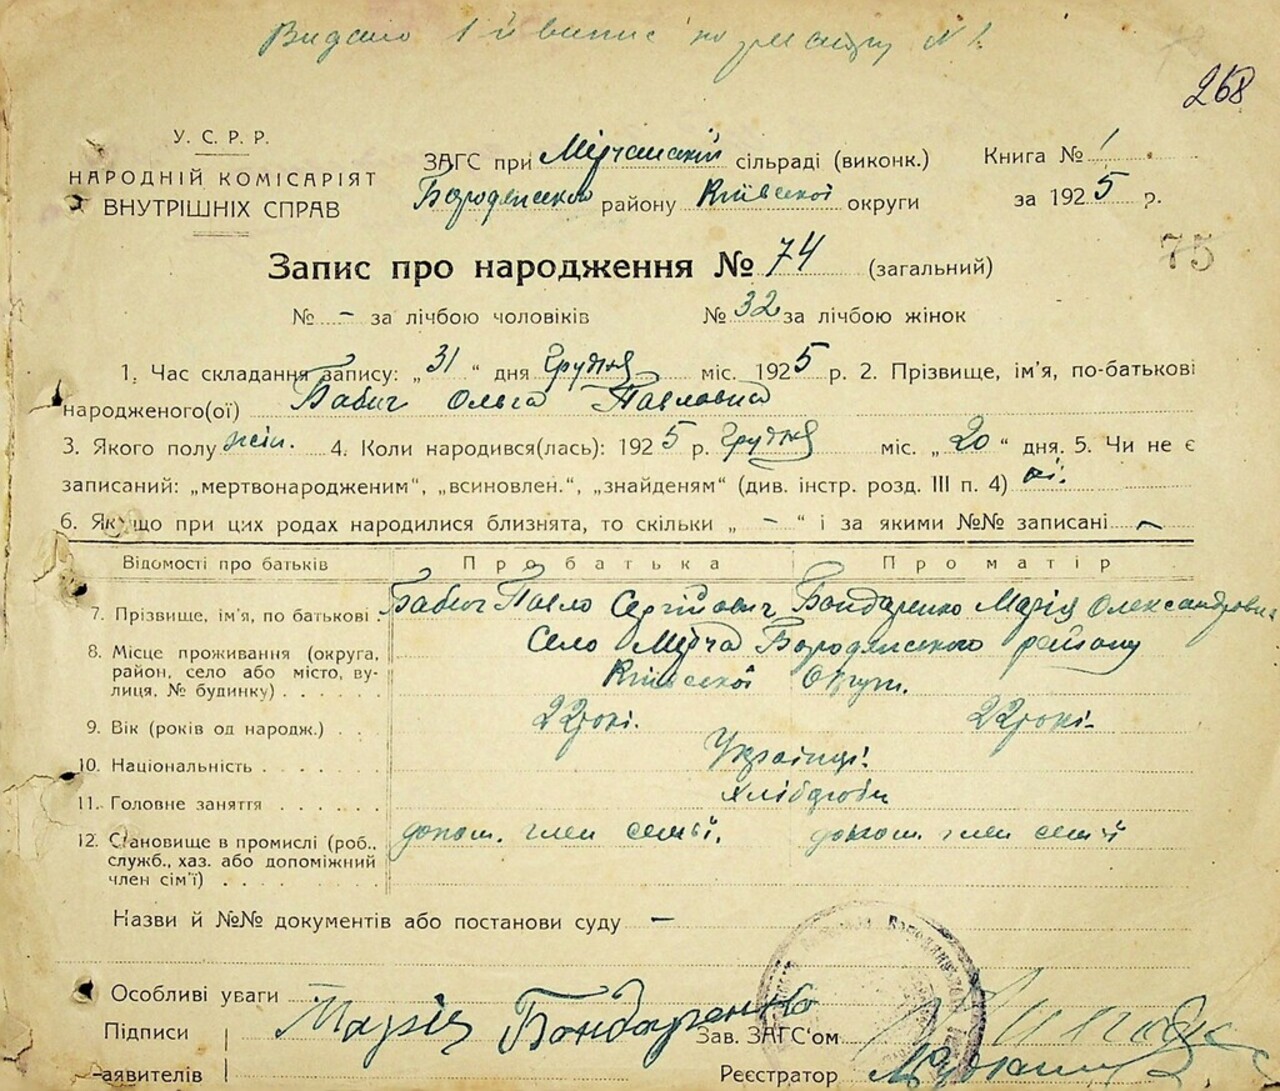 Видано 1й випис по № 1.
268
У. С. Р. Р.
НАРОДНІЙ КОМІСАРІЯТ
ВНУТРІШНІХ СПРАВ
ЗАГС при Мірчанській сільраді (виконк.)
Бородянского району Київської округи
Книга № 1
за 1925 р.
75
Запис про народження № 74 (загальний)
№ - за лічбою чоловіків № 32 за лічбою жінок
1. Час складання запису: „31“ дня Грудня міс. 1925 р. 2. Прізвище, ім'я, по-батькові
народженого(ої) Бабич Ольга Павловна
3. Якого полу жін. 4. Коли народився(лась): 1925 р. Грудня міс. „20“ дня. 5. Чи не є
записаний: „мертвонародженим“, „всиновлен.“, „знайденям“ (див. інстр. розд. III п. 4) ні.
6. Якщо при цих родах народилися близнята, то скільки „ – “ і за якими №№ записані –
Відомості про батьків Про батька Про матір
7. Прізвище, ім'я, по батькові. Бабич Павло Сергійович Бондаренко Марія Олександровн.
8. Місце проживання (округа, Село Мірча Бородянського району
район, село або місто, ву- Київської Округи.
лиця, № будинку) . . . . .
9. Вік (років од народж.) . . 22 роки. 22 роки.
10. Національність . . . . . . Українці.
11. Головне заняття . . . . . . Хлібороби
12. Становище в промислі (роб., допом. член семьї. допом. член семьї
служб., хаз. або допоміжний
член сім'ї) . . . . . . . .
Назви й №№ документів або постанови суду –
Особливі уваги
Підписи Марія Бондаренко Зав. ЗАГС'ом
заявителів Реєстратор